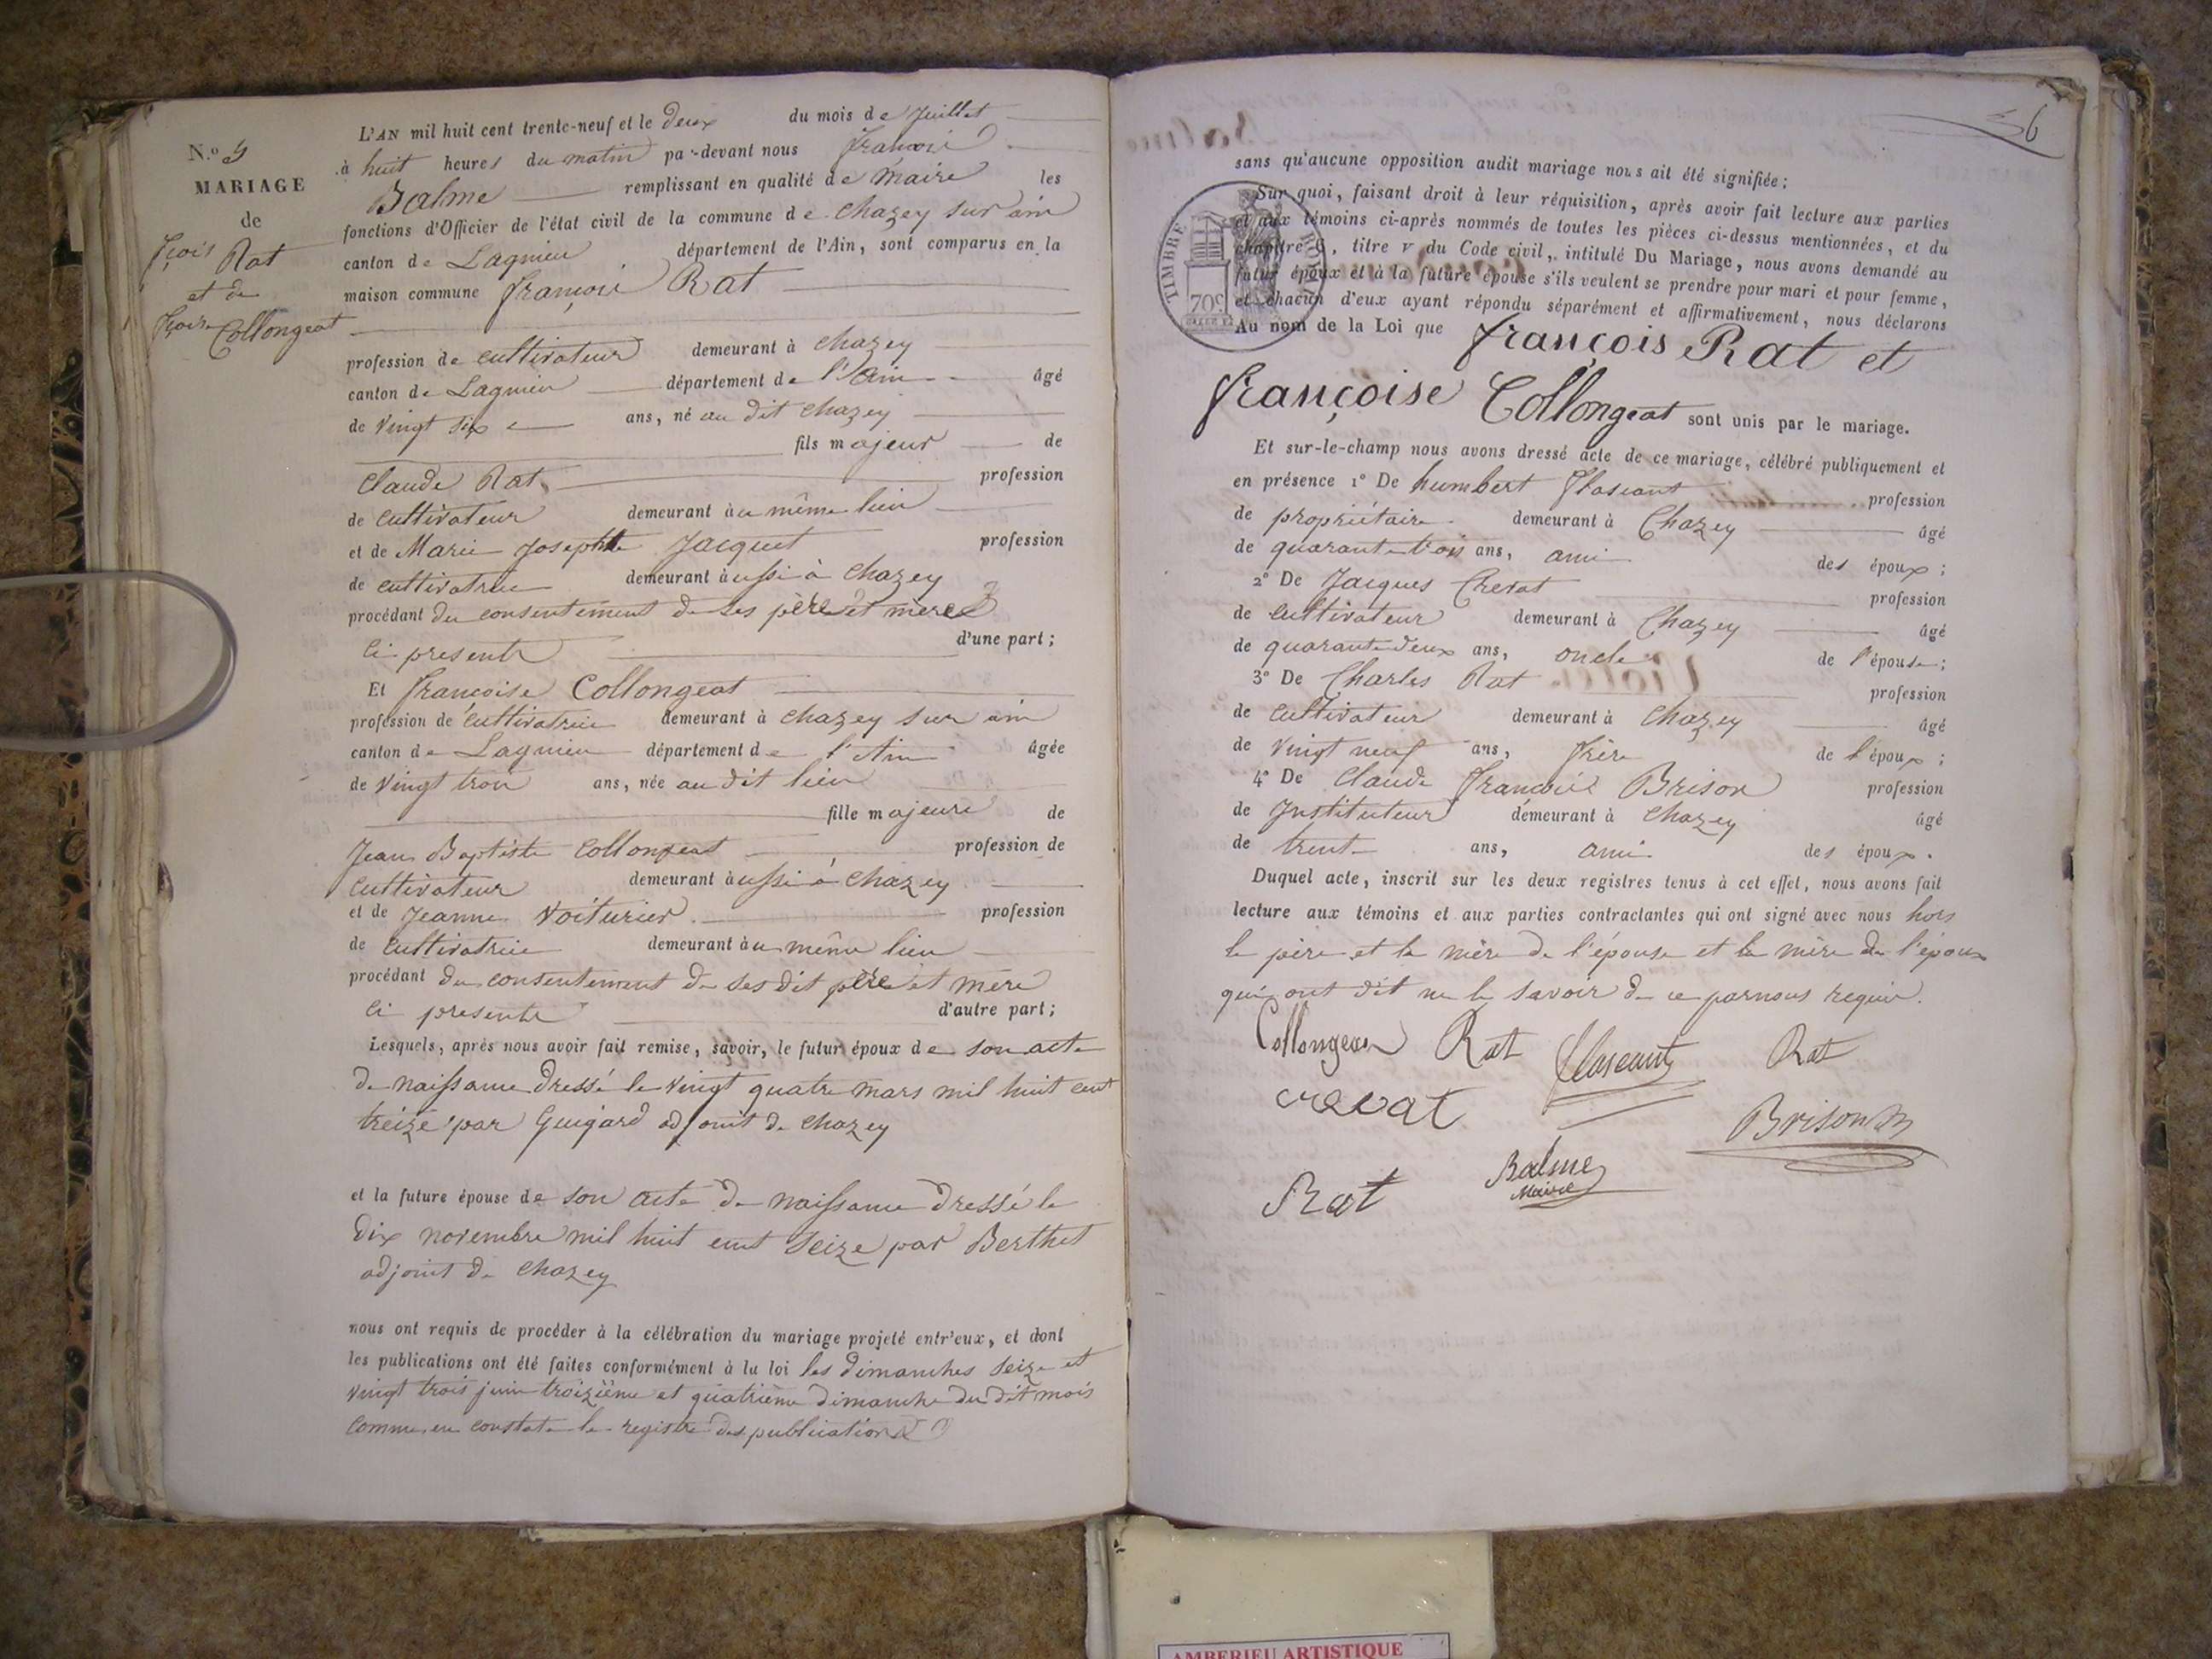 N.º 5
MARIAGE
de
fçois Rat
et de
fçoise Collongeat
L'AN mil huit cent trente-neuf et le deux du mois de Juillet
à huit heures du matin par-devant nous françois
Balme remplissant en qualité de maire les
fonctions d'Officier de l'état civil de la commune de chazey sur ain
canton de Lagnieu département de l'Ain, sont comparus en la
maison commune françois Rat
profession de cultivateur demeurant à chazey
canton de Lagnieu département de l'Ain âgé
de vingt six ans, né au dit chazey
fils majeur de
Claude Rat profession
de cultivateur demeurant au même lieu
et de Marie Josephte Jacquet profession
de cultivatrice demeurant aussi à chazey
procédant du consentement de ses père et mère
ci presents d'une part;
Et françoise Collongeat
profession de cultivatrice demeurant à chazey sur ain
canton de Lagnieu département de l'Ain âgée
de vingt trois ans, née au dit lieu
fille majeure de
Jean Baptiste Collongeat profession de
cultivateur demeurant aussi à chazey
et de Jeanne Voiturier profession
de cultivatrice demeurant au même lieu
procédant du consentement de ses dit père et mère
ci presents d'autre part;
Lesquels, après nous avoir fait remise, savoir, le futur époux de son acte
de naissance dressé le vingt quatre mars mil huit cent
treize par Guigard adjoint de chazey
et la future épouse de son acte de naissance dressé le
dix novembre mil huit cent seize par Berthet
adjoint de chazey
nous ont requis de procéder à la célébration du mariage projeté entr'eux, et dont
les publications ont été faites conformément à la loi les dimanches seize et
vingt trois juin troizième et quatrième dimanche du dit mois
comme en constate le registre des publications
6
sans qu'aucune opposition audit mariage nous ait été signifiée;
Sur quoi, faisant droit à leur réquisition, après avoir fait lecture aux parties
et aux témoins ci-après nommés de toutes les pièces ci-dessus mentionnées, et du
chapitre 6, titre v du Code civil, intitulé Du Mariage, nous avons demandé au
futur époux et à la future épouse s'ils veulent se prendre pour mari et pour femme,
et chacun d'eux ayant répondu séparément et affirmativement, nous déclarons
Au nom de la Loi que françois Rat et
françoise Collongeat sont unis par le mariage.
TIMBRE ROYAL
70c
Et sur-le-champ nous avons dressé acte de ce mariage, célébré publiquement et
en présence 1º De humbert flascant profession
de propriétaire demeurant à Chazey âgé
de quarante trois ans, ami des époux;
2º De Jacques Crevat profession
de cultivateur demeurant à Chazey âgé
de quarante deux ans, oncle de l'épouse;
3º De Charles Rat profession
de cultivateur demeurant à chazey âgé
de vingt neuf ans, frère de l'époux;
4º De Claude françois Brison profession
de Instituteur demeurant à chazey âgé
de trente ans, ami des époux.
Duquel acte, inscrit sur les deux registres tenus à cet effet, nous avons fait
lecture aux témoins et aux parties contractantes qui ont signé avec nous hors
le père et la mère de l'épouse et la mère de l'époux
qui ont dit ne le savoir de ce par nous requis.
Collongeat Rat flascant Rat
crevat Brison
Rat Balme
Maire
AMBERIEU ARTISTIQUE